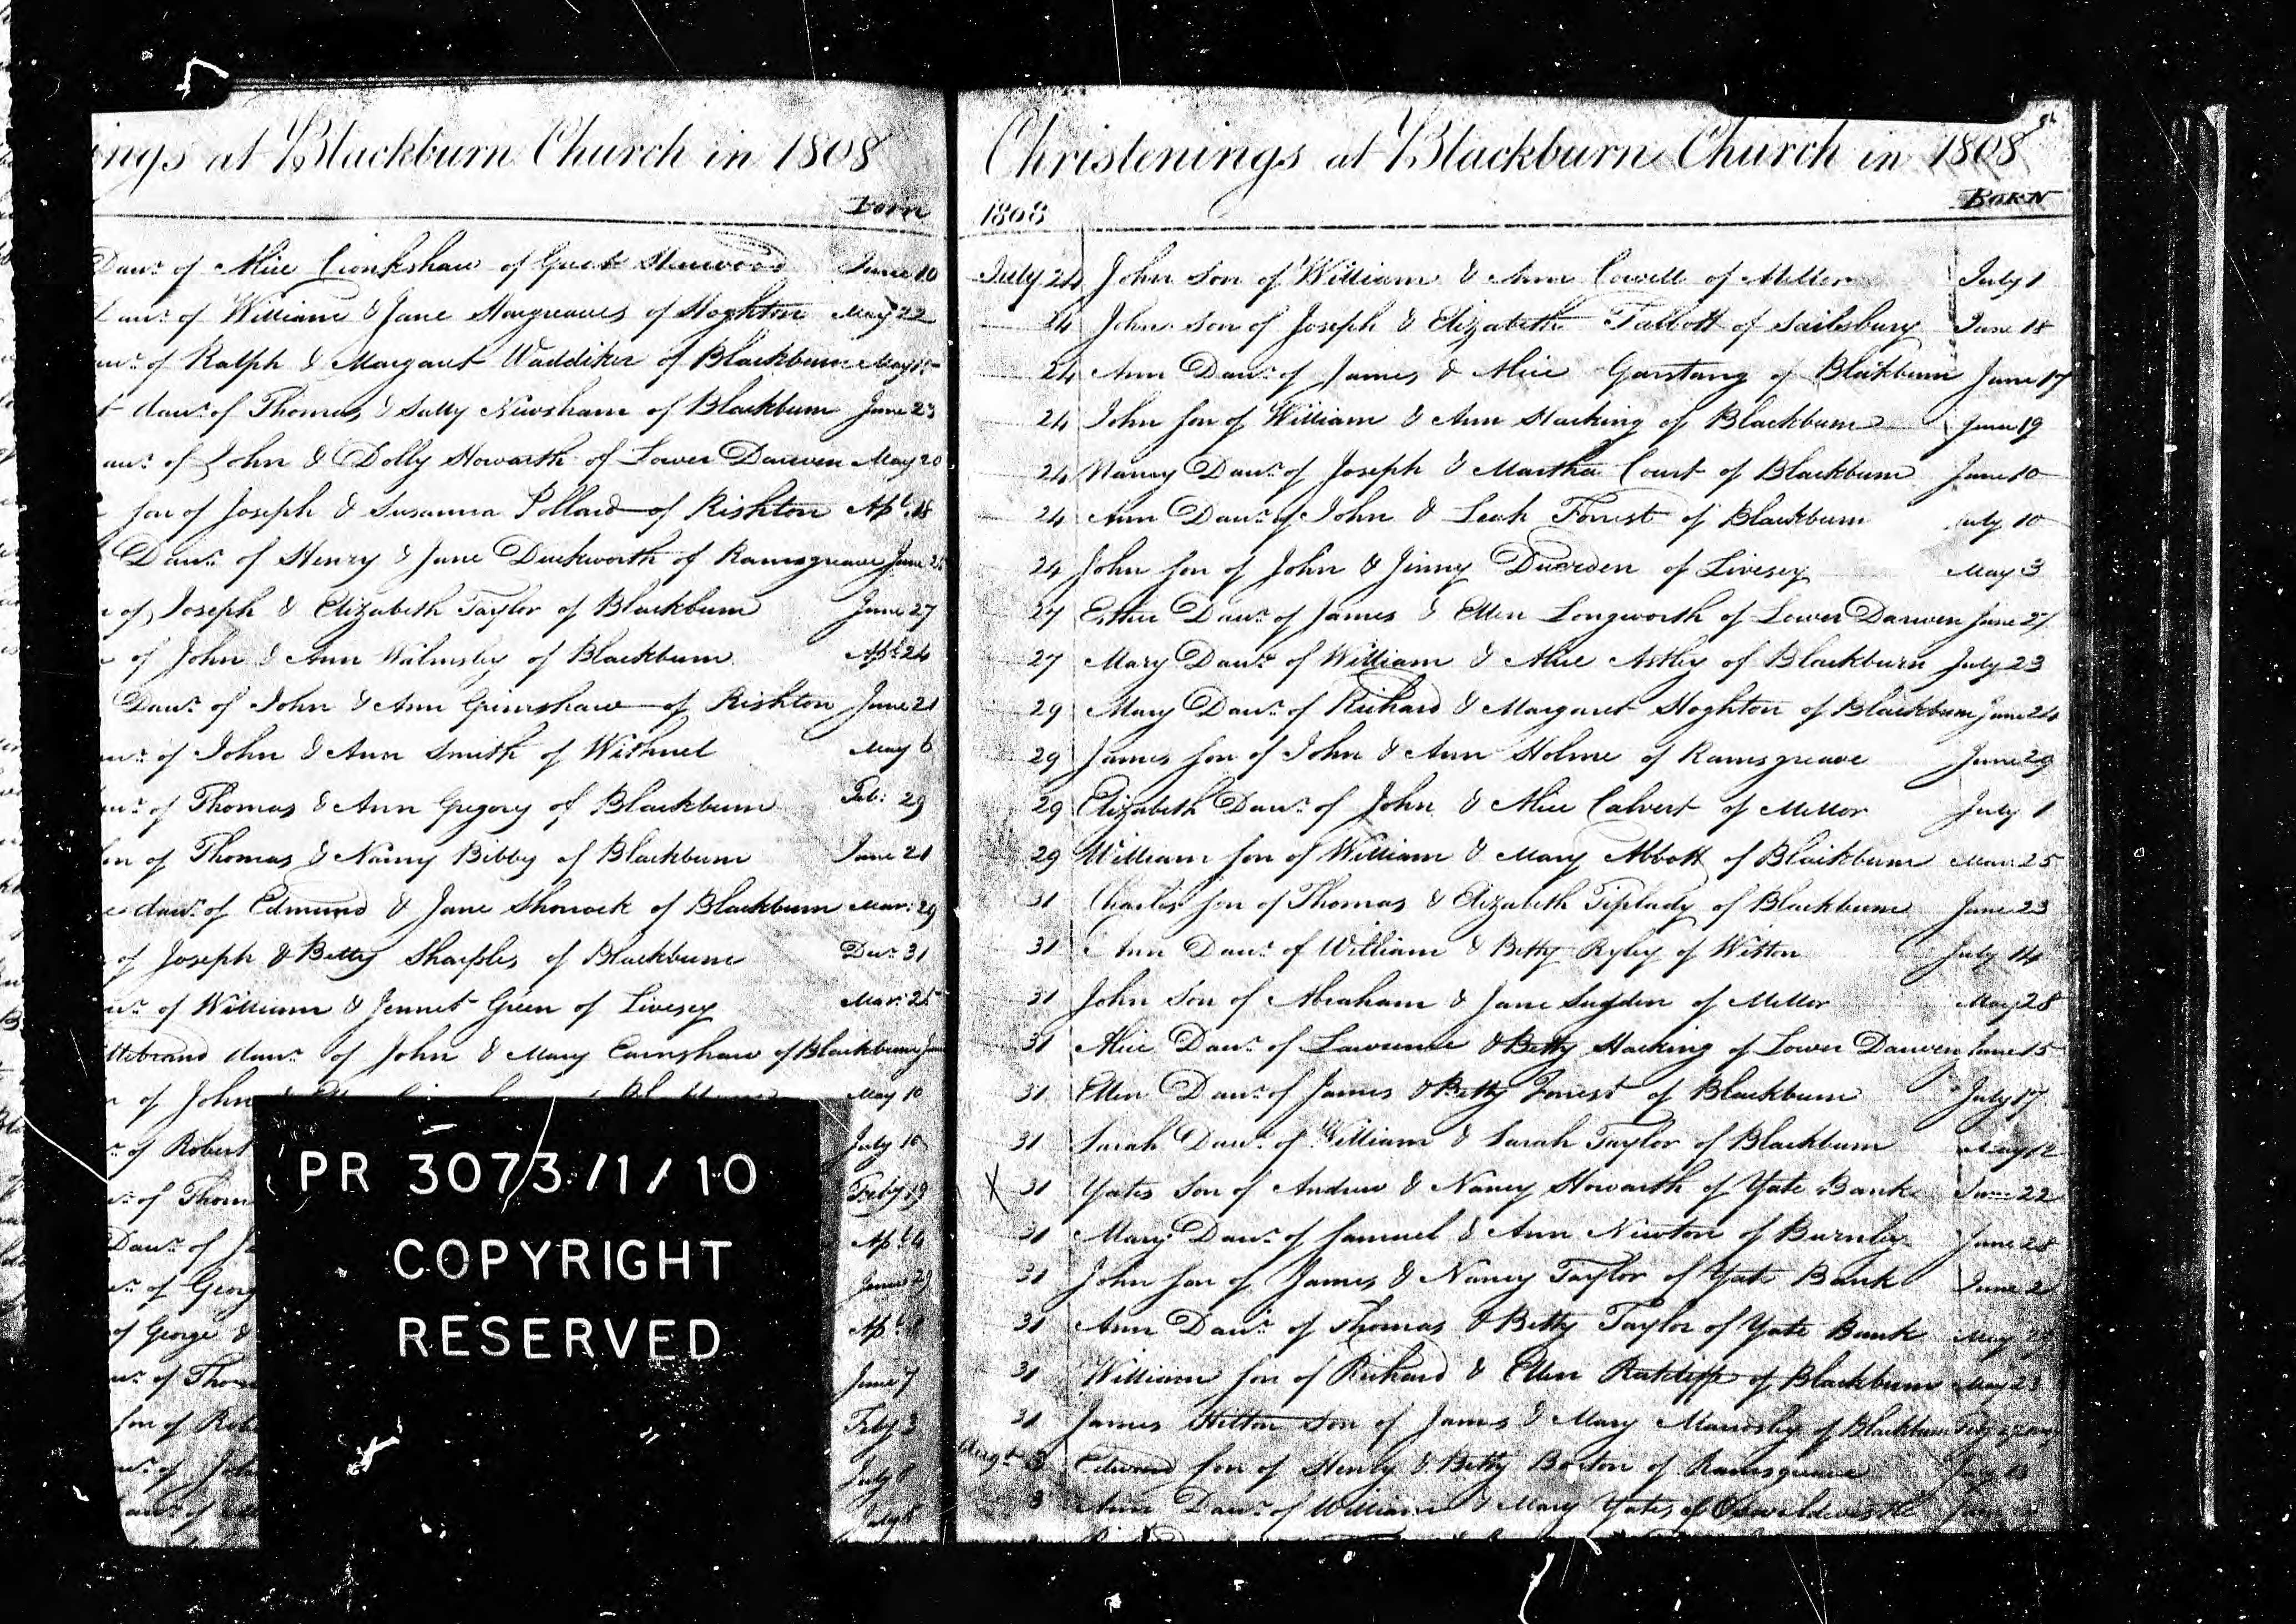 ings at Blackburn Church in 1808
Born
Dawr. of Alice Cronkshaw of Great Harwood June 10
Dawr. of William & Jane Hargreaves of Hoghton May 22
awr. of Ralph & Margaret Waddiker of Blackburn May 15
dawr. of Thomas & Sally Newsham of Blackburn June 23
awr. of John & Dolly Howarth of Lower Darwen May 20
Son of Joseph & Susanna Pollard of Rishton Apl. 18
Dawr. of Henry & Jane Duckworth of Ramsgreave June
of Joseph & Elizabeth Taylor of Blackburn June 27
of John & Ann Walmsley of Blackburn Apl. 24
Dawr. of John & Ann Grimshaw of Rishton June 21
awr. of John & Ann Smith of Withnel May 6
awr. of Thomas & Ann Gregory of Blackburn Feb: 29
Son of Thomas & Nancy Bibby of Blackburn June 21
dawr. of Edmund & Jane Shorrock of Blackburn Mar: 29
of Joseph & Betty Sharples of Blackburn Decr. 31
awr. of William & Jennet Green of Livesey Mar: 25
ttebrand dawr. of John & Mary Earnshaw of Blackburn
of John May 10
of Robert July 10
of Thom Feby 19
Dawr. of Apl. 4
of Georg June 29
of George & Apl.
of Thom June 7
Son of Rob Feby 3
July 8
July
PR 3073/1/10
COPYRIGHT
RESERVED
Christenings at Blackburn Church in 1808
1808 BORN
July 24 John Son of William & Ann Cowell of Mellor July 1
24 John Son of Joseph & Elizabeth Talbott of Sailsbury June 18
24 Ann Dawr. of James & Alice Garstang of Blakburn June 17
24 John Son of William & Ann Hacking of Blackburn June 19
24 Nancy Dawr. of Joseph & Martha Court of Blackburn June 10
24 Ann Dawr. of John & Leah Forrest of Blackburn July 10
24 John Son of John & Jinny Duerden of Livesey May 3
27 Esther Dawr. of James & Ellen Longworth of Lower Darwen June 27
27 Mary Dawr. of William & Alice Astley of Blackburn July 23
29 Mary Dawr. of Richard & Margaret Hoghton of Blackburn June 24
29 James Son of John & Ann Holme of Ramsgreave June 29
29 Elizabeth Dawr. of John & Alice Calvert of Mellor July 1
29 William Son of William & Mary Abbott of Blackburn Mar: 25
31 Charles Son of Thomas & Elizabeth Tiplady of Blackburn June 23
31 Ann Dawr. of William & Betty Ryley of Witton July 14
31 John Son of Abraham & Jane Sugden of Mellor May 28
31 Alice Dawr. of Lawrence & Betty Hacking of Lower Darwen June 15
31 Ellen Dawr. of James & Betty Forrest of Blackburn July 17
31 Sarah Dawr. of William & Sarah Taylor of Blackburn May 12
X 31 Yates Son of Andrew & Nancy Howarth of Yate Bank June 22
31 Mary Dawr. of Samuel & Ann Newton of Burnley June 28
31 John Son of James & Nancy Taylor of Yate Bank June 2
31 Ann Dawr. of Thomas & Betty Taylor of Yate Bank May
31 William Son of Richard & Ellen Ratcliffe of Blackburn May 23
31 James Hilton Son of James & Mary Mawdsley of Blackburn Feby
Augt. 3 Edward Son of Henry & Betty Boston of Ramsgreave
3 Ann Dawr. of William & Mary Yates of Oswaldwistle